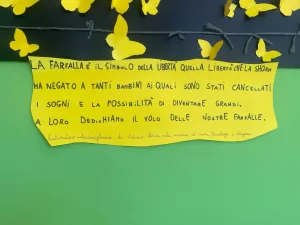 LA FARFALLA È IL SIMBOLO DELLA LIBERTÀ QUELLA LIBERTÀ CHE LA SHOAH
HA NEGATO A TANTI BAMBINI AI QUALI SONO STATI CANCELLATI
I SOGNI E LA POSSIBILITÀ DI DIVENTARE GRANDI.
A LORO DEDICHIAMO IL VOLO DELLE NOSTRE FARFALLE.